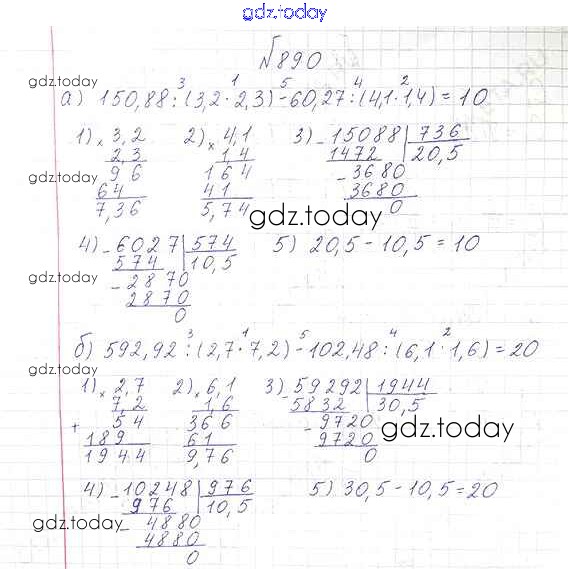 gdz.today
№890
а) 150,88:(3,2·2,3)-60,27:(4,1·1,4)=10
3 1 5 4 2
gdz.today
1) × 3,2 2) × 4,1 3) - 15088 | 736
2,3 1,4 1472 20,5
96 164 - 3680
64 41 3680
7,36 5,74 0
gdz.today
gdz.today
4) - 6027 | 574 5) 20,5 - 10,5 = 10
574 10,5
- 2870
2870
0
gdz.today
б) 592,92:(2,7·7,2)-102,48:(6,1·1,6)=20
3 1 5 4 2
gdz.today
1) × 2,7 2) × 6,1 3) - 59292 | 1944
7,2 1,6 5832 30,5
+ 54 366 - 9720
189 61 9720
1944 9,76 0
gdz.today
4) - 10248 | 976 5) 30,5 - 10,5 = 20
976 10,5
- 4880
4880
0
gdz.today